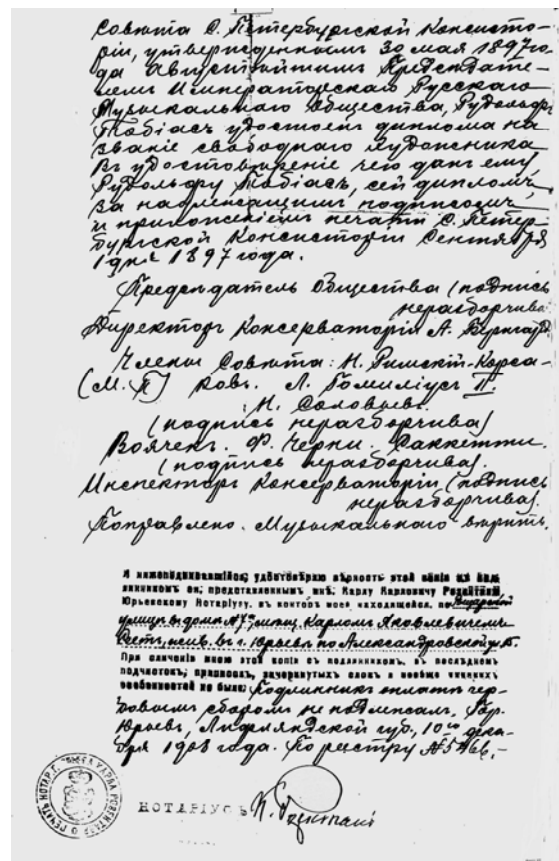 Совѣта С. Петербургской Консисто-
ріи, утвержденнымъ 30 мая 1897 го-
да Августѣйшимъ Предсѣдате-
лемъ Императорскаго Русскаго
Музыкальнаго Общества, Рудольфъ
Тобіасъ удостоенъ диплома на
званіе свободнаго художника
Въ удостовѣреніе чего данъ ему,
Рудольфу Тобіасъ, сей дипломъ,
за надлежащимъ подписомъ
и приложеніемъ печати С. Петер-
бургской Консисторіи Сентября
1 дня 1897 года.
Предсѣдатель Общества (подпись
неразборчива
Директоръ Консерваторіи А. Бернгард.
Члены Совѣта: Н. Римскій-Корса-
(М. П) ковъ. Л. Гомиліусъ II.
Н. Соловьевъ.
(подпись неразборчива)
Воячекъ. Ф. Черни. Саккетти.
(подпись неразборчива).
Инспекторъ Консерваторіи (подпись
неразборчива).
Поправлено. Музыкальнаго вѣрить.
Я нижеподписавшійся, удостовѣряю вѣрность этой копіи съ под-
линникомъ ея, представленнымъ мнѣ, Карлу Карловичу Розентал
Юрьевскому Нотаріусу, въ конторѣ моей находящейся, по Рыцарской
улицѣ въ домѣ № мѣщ. Карломъ Яковлевичемъ
жив. въ г. Юрьевѣ по Александровской ул.
При сличеніи мною этой копіи съ подлинникомъ, въ послѣднемъ
подчистокъ, приписокъ, зачеркнутыхъ словъ и вообще никакихъ
особенностей не было; Подлинникъ оплатѣ гер-
бовымъ сборомъ не подлежалъ. Гор.
Юрьевъ, Лифляндской губ., 10го дека-
бря 1908 года. По реестру №
НОТАРІУСЪ К. Розенталь